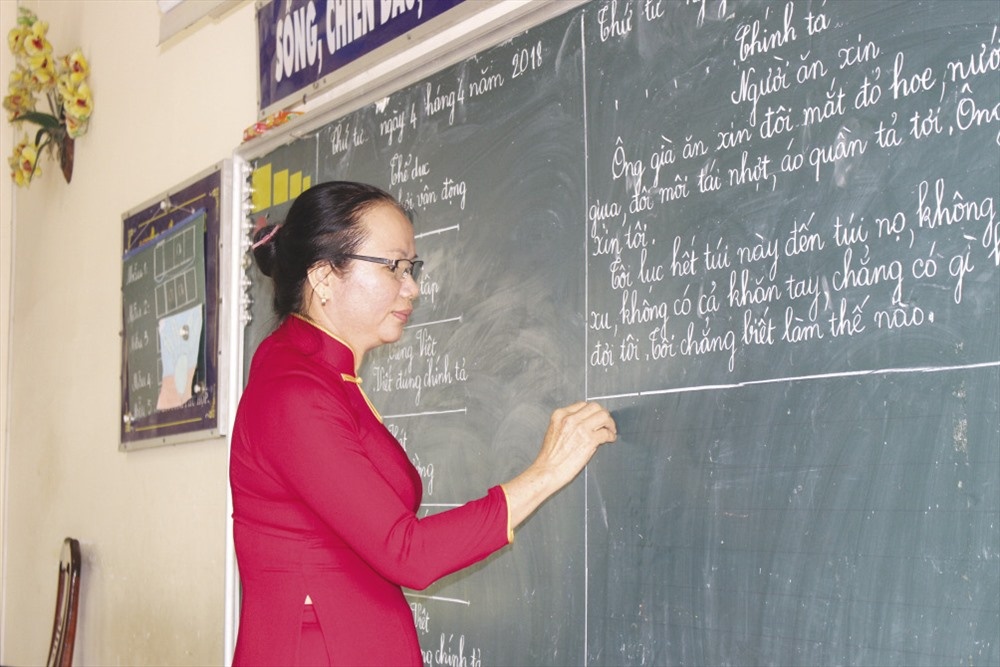 SỐNG, CHIẾN ĐẤU,
Thứ tư ngày 4 tháng 4 năm 2018
Thể dục
vận động
tập
Tiếng Việt
Viết đúng chính tả
chính tả
Mẫu 1:
Mẫu 2:
Mẫu 3:
Mẫu 4
Mẫu 5
Thứ tư
Chính tả
Người ăn xin
Ông già ăn xin đôi mắt đỏ hoe, nước
giụa, đôi môi tái nhợt, áo quần tả tơi. Ông
xin tôi.
Tôi lục hết túi này đến túi nọ, không
xu, không có cả khăn tay, chẳng có gì
đợi tôi. Tôi chẳng biết làm thế nào.